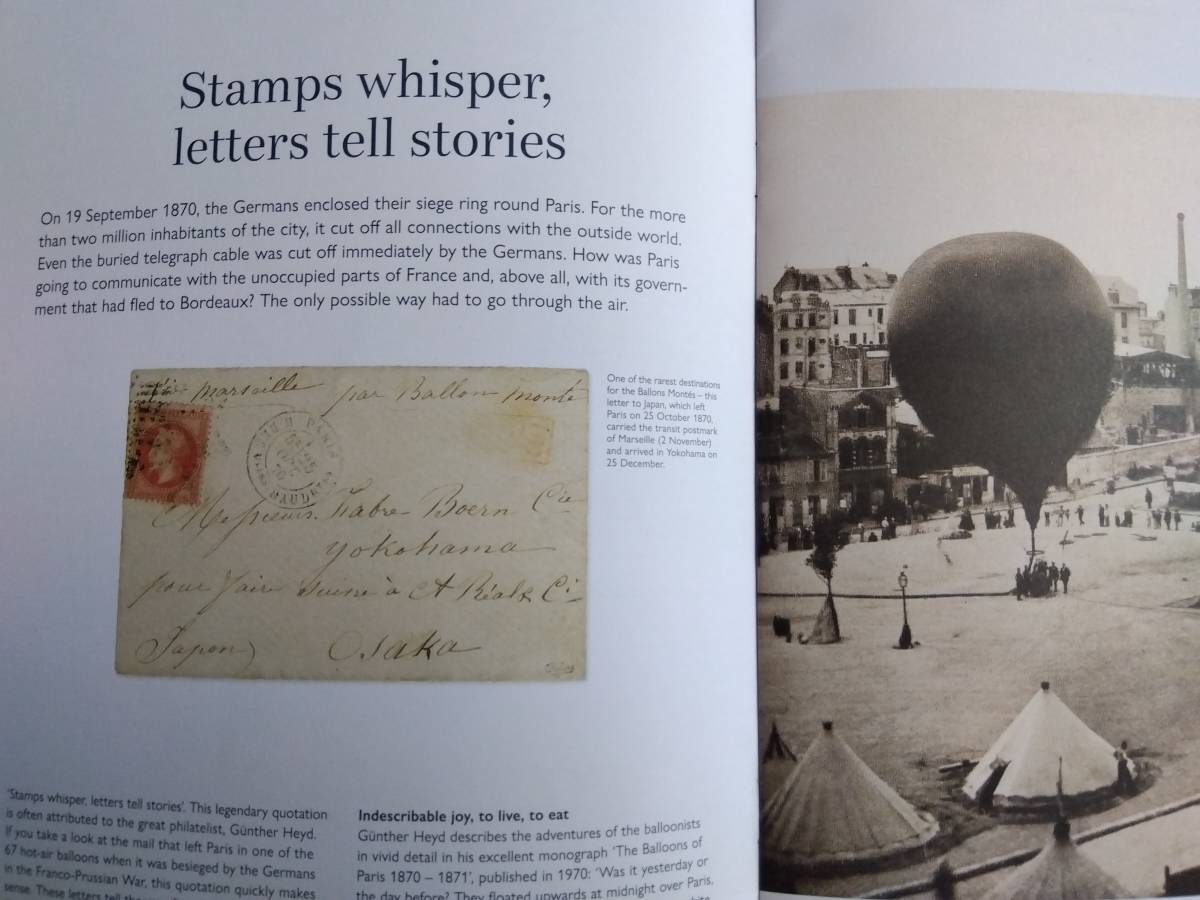 Stamps whisper,
letters tell stories
On 19 September 1870, the Germans enclosed their siege ring round Paris. For the more
than two million inhabitants of the city, it cut off all connections with the outside world.
Even the buried telegraph cable was cut off immediately by the Germans. How was Paris
going to communicate with the unoccupied parts of France and, above all, with its govern-
ment that had fled to Bordeaux? The only possible way had to go through the air.
Marseille par Ballon monté
PARIS
Messieurs Fabre Boern Cie
Yokohama
pour faire suivre à
Japon) Osaka
One of the rarest destinations
for the Ballons Montés – this
letter to Japan, which left
Paris on 25 October 1870,
carried the transit postmark
of Marseille (2 November)
and arrived in Yokohama on
25 December.
'Stamps whisper, letters tell stories'. This legendary quotation
is often attributed to the great philatelist, Günther Heyd.
If you take a look at the mail that left Paris in one of the
67 hot-air balloons when it was besieged by the Germans
in the Franco-Prussian War, this quotation quickly makes
sense. These letters tell
Indescribable joy, to live, to eat
Günther Heyd describes the adventures of the balloonists
in vivid detail in his excellent monograph 'The Balloons of
Paris 1870 – 1871', published in 1970: 'Was it yesterday or
the day before? They floated upwards at midnight over Paris.